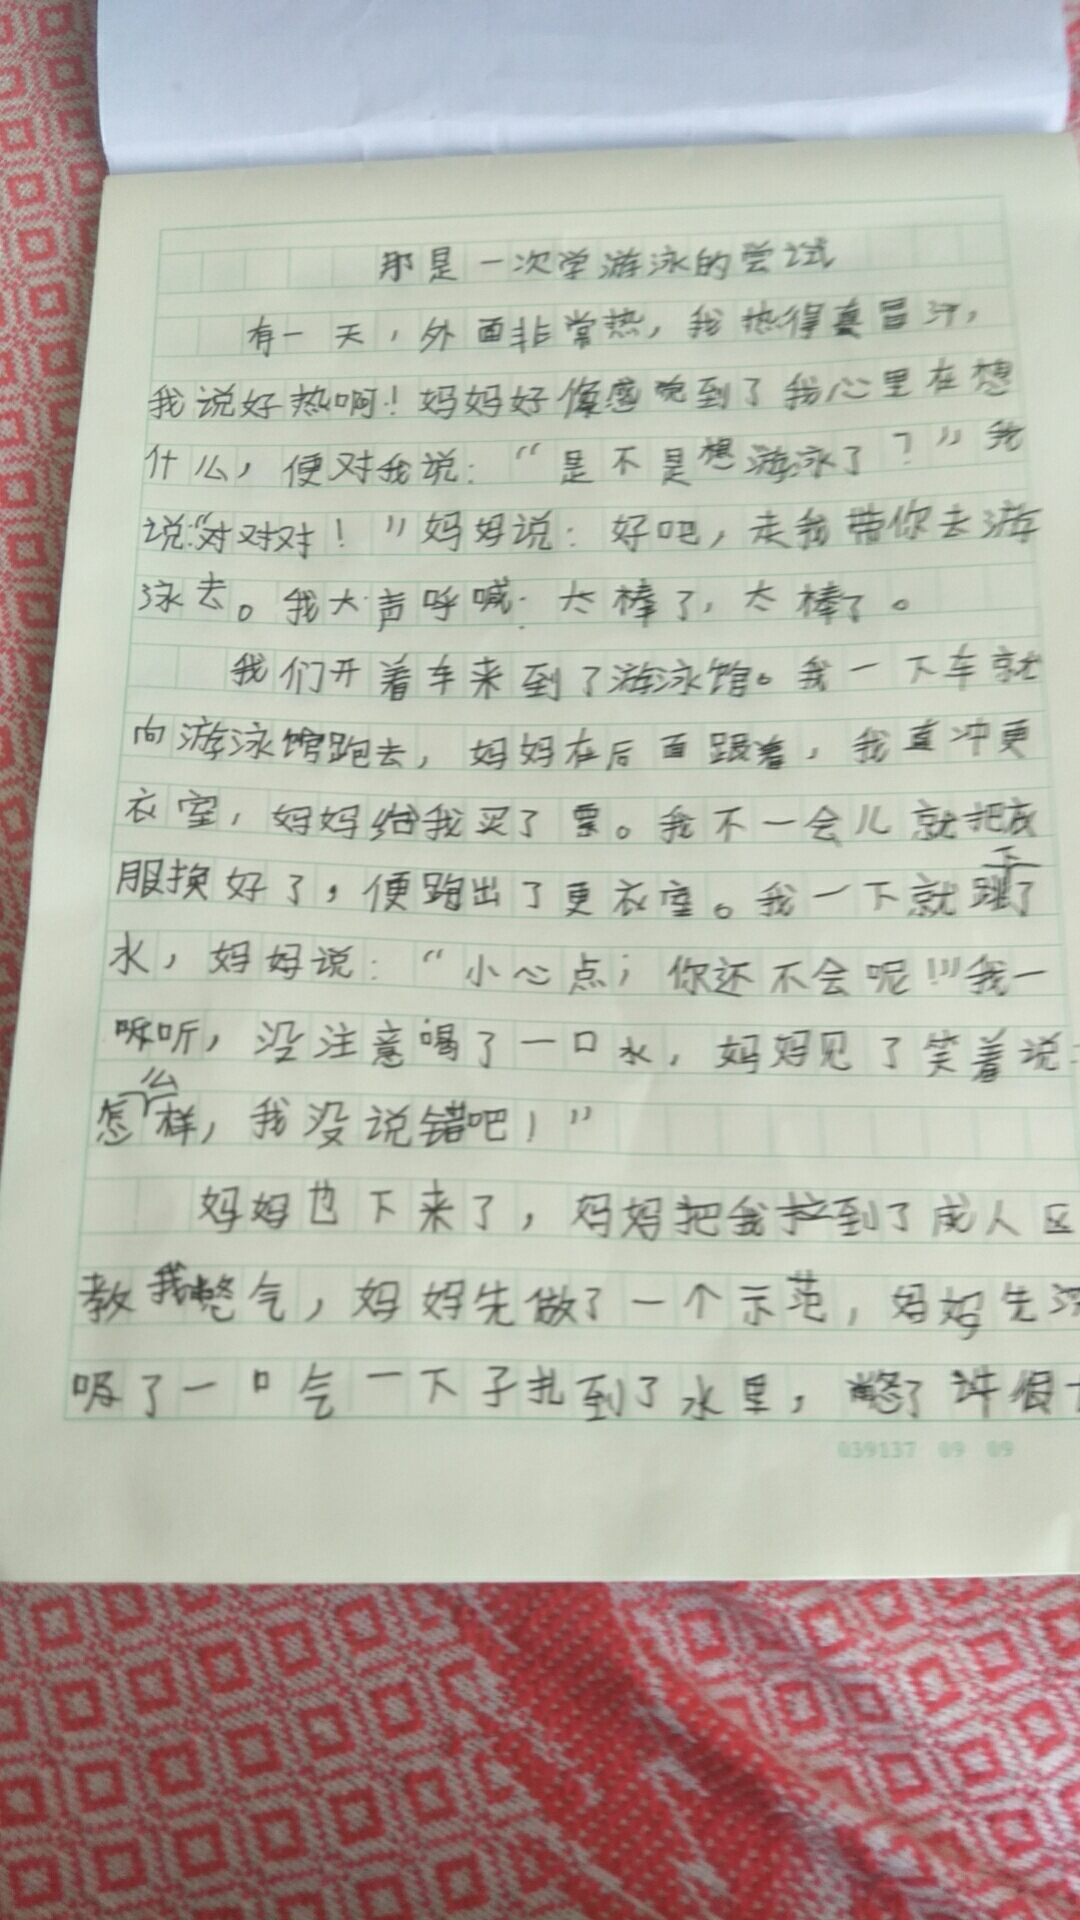 那是一次学游泳的尝试
有一天，外面非常热，我热得真冒汗，
我说好热啊！妈妈好像感觉到了我心里在想
什么，便对我说：“是不是想游泳了？”我
说：“对对对！”妈妈说：好吧，走我带你去游
泳去。我大声呼喊：太棒了，太棒了。
我们开着车来到了游泳馆。我一下车就
向游泳馆跑去，妈妈在后面跟着，我直冲更
衣室，妈妈给我买了票。我不一会儿就把衣
服换好了，便跑出了更衣室。我一下就跳下了
水，妈妈说：“小心点；你还不会呢！”我一
听，没注意喝了一口水，妈妈见了笑着说：
怎么样，我没说错吧！”
妈妈也下来了，妈妈把我拉到了成人区
教我憋气，妈妈先做了一个示范，妈妈先
吸了一口气一下子扎到了水里，憋了许
039137 09 09